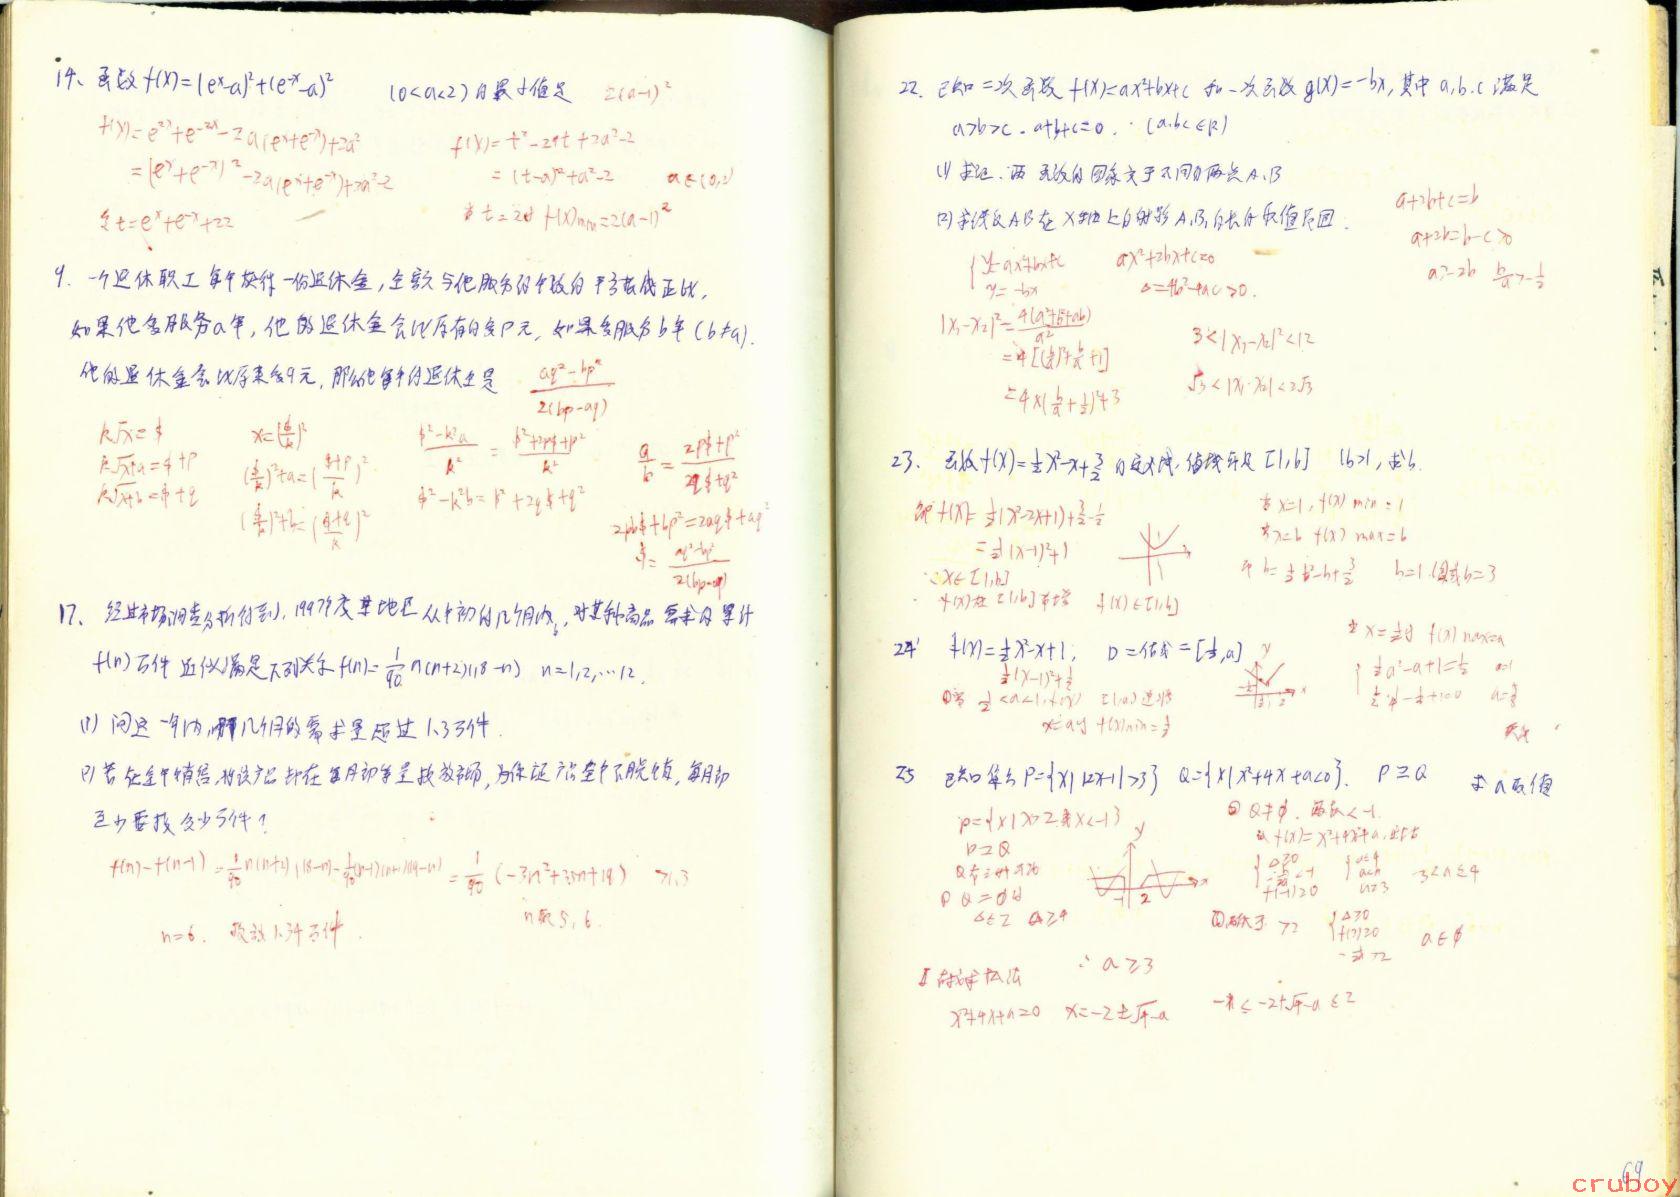 14、函数 f(x)=(eˣ-a)²+(e⁻ˣ-a)² (0<a<2) 的最小值是 2(a-1)²
f(x)=e²ˣ+e⁻²ˣ-2a(eˣ+e⁻ˣ)+2a²
=(eˣ+e⁻ˣ)²-2a(eˣ+e⁻ˣ)+2a²-2
令t=eˣ+e⁻ˣ+≥2
f(x)=t²-2at+2a²-2
=(t-a)²+a²-2 a∈(0,2)
当t=2时 f(x)min=2(a-1)²
9. 一个退休职工每年获得一份退休金,金额与他服务的年数的平方根成正比,
如果他多服务a年,他的退休金会比原有的多p元,如果多服务b年(b≠a).
他的退休金会比原来多q元,那么他每年的退休金是 (aq²-bp²)/(2(bp-aq))
k√x=$
k√x+a=$+p
k√x+b=$+q
x=($/k)²
($/k)²+a=(($+p)/k)²
($/k)²+b=(($+q)/k)²
($²-k²a)/k²=($²+2p$+p²)/k²
$²-k²b=$²+2q$+q²
a/b=(2p$+p²)/(2q$+q²)
2pb$+bp²=2aq$+aq²
$=(aq²-bp²)/(2(bp-aq))
17、经过市场调查分析得到,1997年度某地区从年初的几个月内,对某种商品需求的累计
f(n)万件近似满足下列关系f(n)=1/90 n(n+2)(18-n) n=1,2,…12.
(1) 问这一年内,哪几个月的需求量超过1.3万件.
(2) 若在全年销售,将该产品都在每月初等量投放市场,为保证产品全年不脱销,每月初
至少要投多少万件?
f(n)-f(n-1)=1/90 n(n+2)(18-n)-1/90(n-1)(n+1)(19-n)=1/90(-3n²+35n+19) >1.3
n取5,6.
n=6. 投放1.34万件.
22. 已知二次函数 f(x)=ax²+bx+c 和一次函数g(x)=-bx,其中a,b.c满足
a>b>c. a+b+c=0. (a.b.c∈R)
(1) 求证.两函数的图象交于不同的两点A.B
(2) 求线段AB在X轴上的射影A₁B₁的长的取值范围.
a+2b+c=b
a+2b=b-c>0
a>-2b b/a>-1/2
{y=ax²+bx+c
y=-bx
ax²+2bx+c=0
△=4b²-4ac>0.
|x₁-x₂|²=4(a²+b²+ab)/a²
=4[(b/a)²+b/a+1]
=4×(b/a+1/2)²+3
3<|x₁-x₂|²<12
√3<|x₁-x₂|<2√3
23. 函数f(x)=½x²-x+3/2的定义域,值域都是[1,b] (b>1),求b.
解f(x)=½(x²-2x+1)+3/2-½
=½(x-1)²+1
∵x∈[1,b]
f(x)在[1,b]单增 f(x)∈[1,b]
当x=1,f(x) min=1
当x=b f(x) max=b
即b=½b²-b+3/2 b=1(舍)或b=3
24 f(x)=½x²-x+1, D=值域=[½,a]
½(x-1)²+½
①当½<a<1,f(x) [½,a]递减
x=a时 f(x)min=½
当x=½时 f(x)max=a
{½a²-a+1=½ a=1
½·¼-½+1=a a=5/8
25 已知集合P={x||2x-1|>3} Q={x|x²+4x+a<0}. P⊇Q 求a取值
P={x|x>2或x<-1}
P⊇Q
① Q=∅时
△≤0 a≥4
② Q≠∅. 两根<-1.
f(x)=x²+4x+a
{△>0
f(-1)≥0
a<4
a≥3
3<a≤4
>2
{△>0
f(2)≥0
>2
a∈∅
∴a≥3
Ⅱ
x²+4x+a=0 x=-2±√4-a
69
cruboy